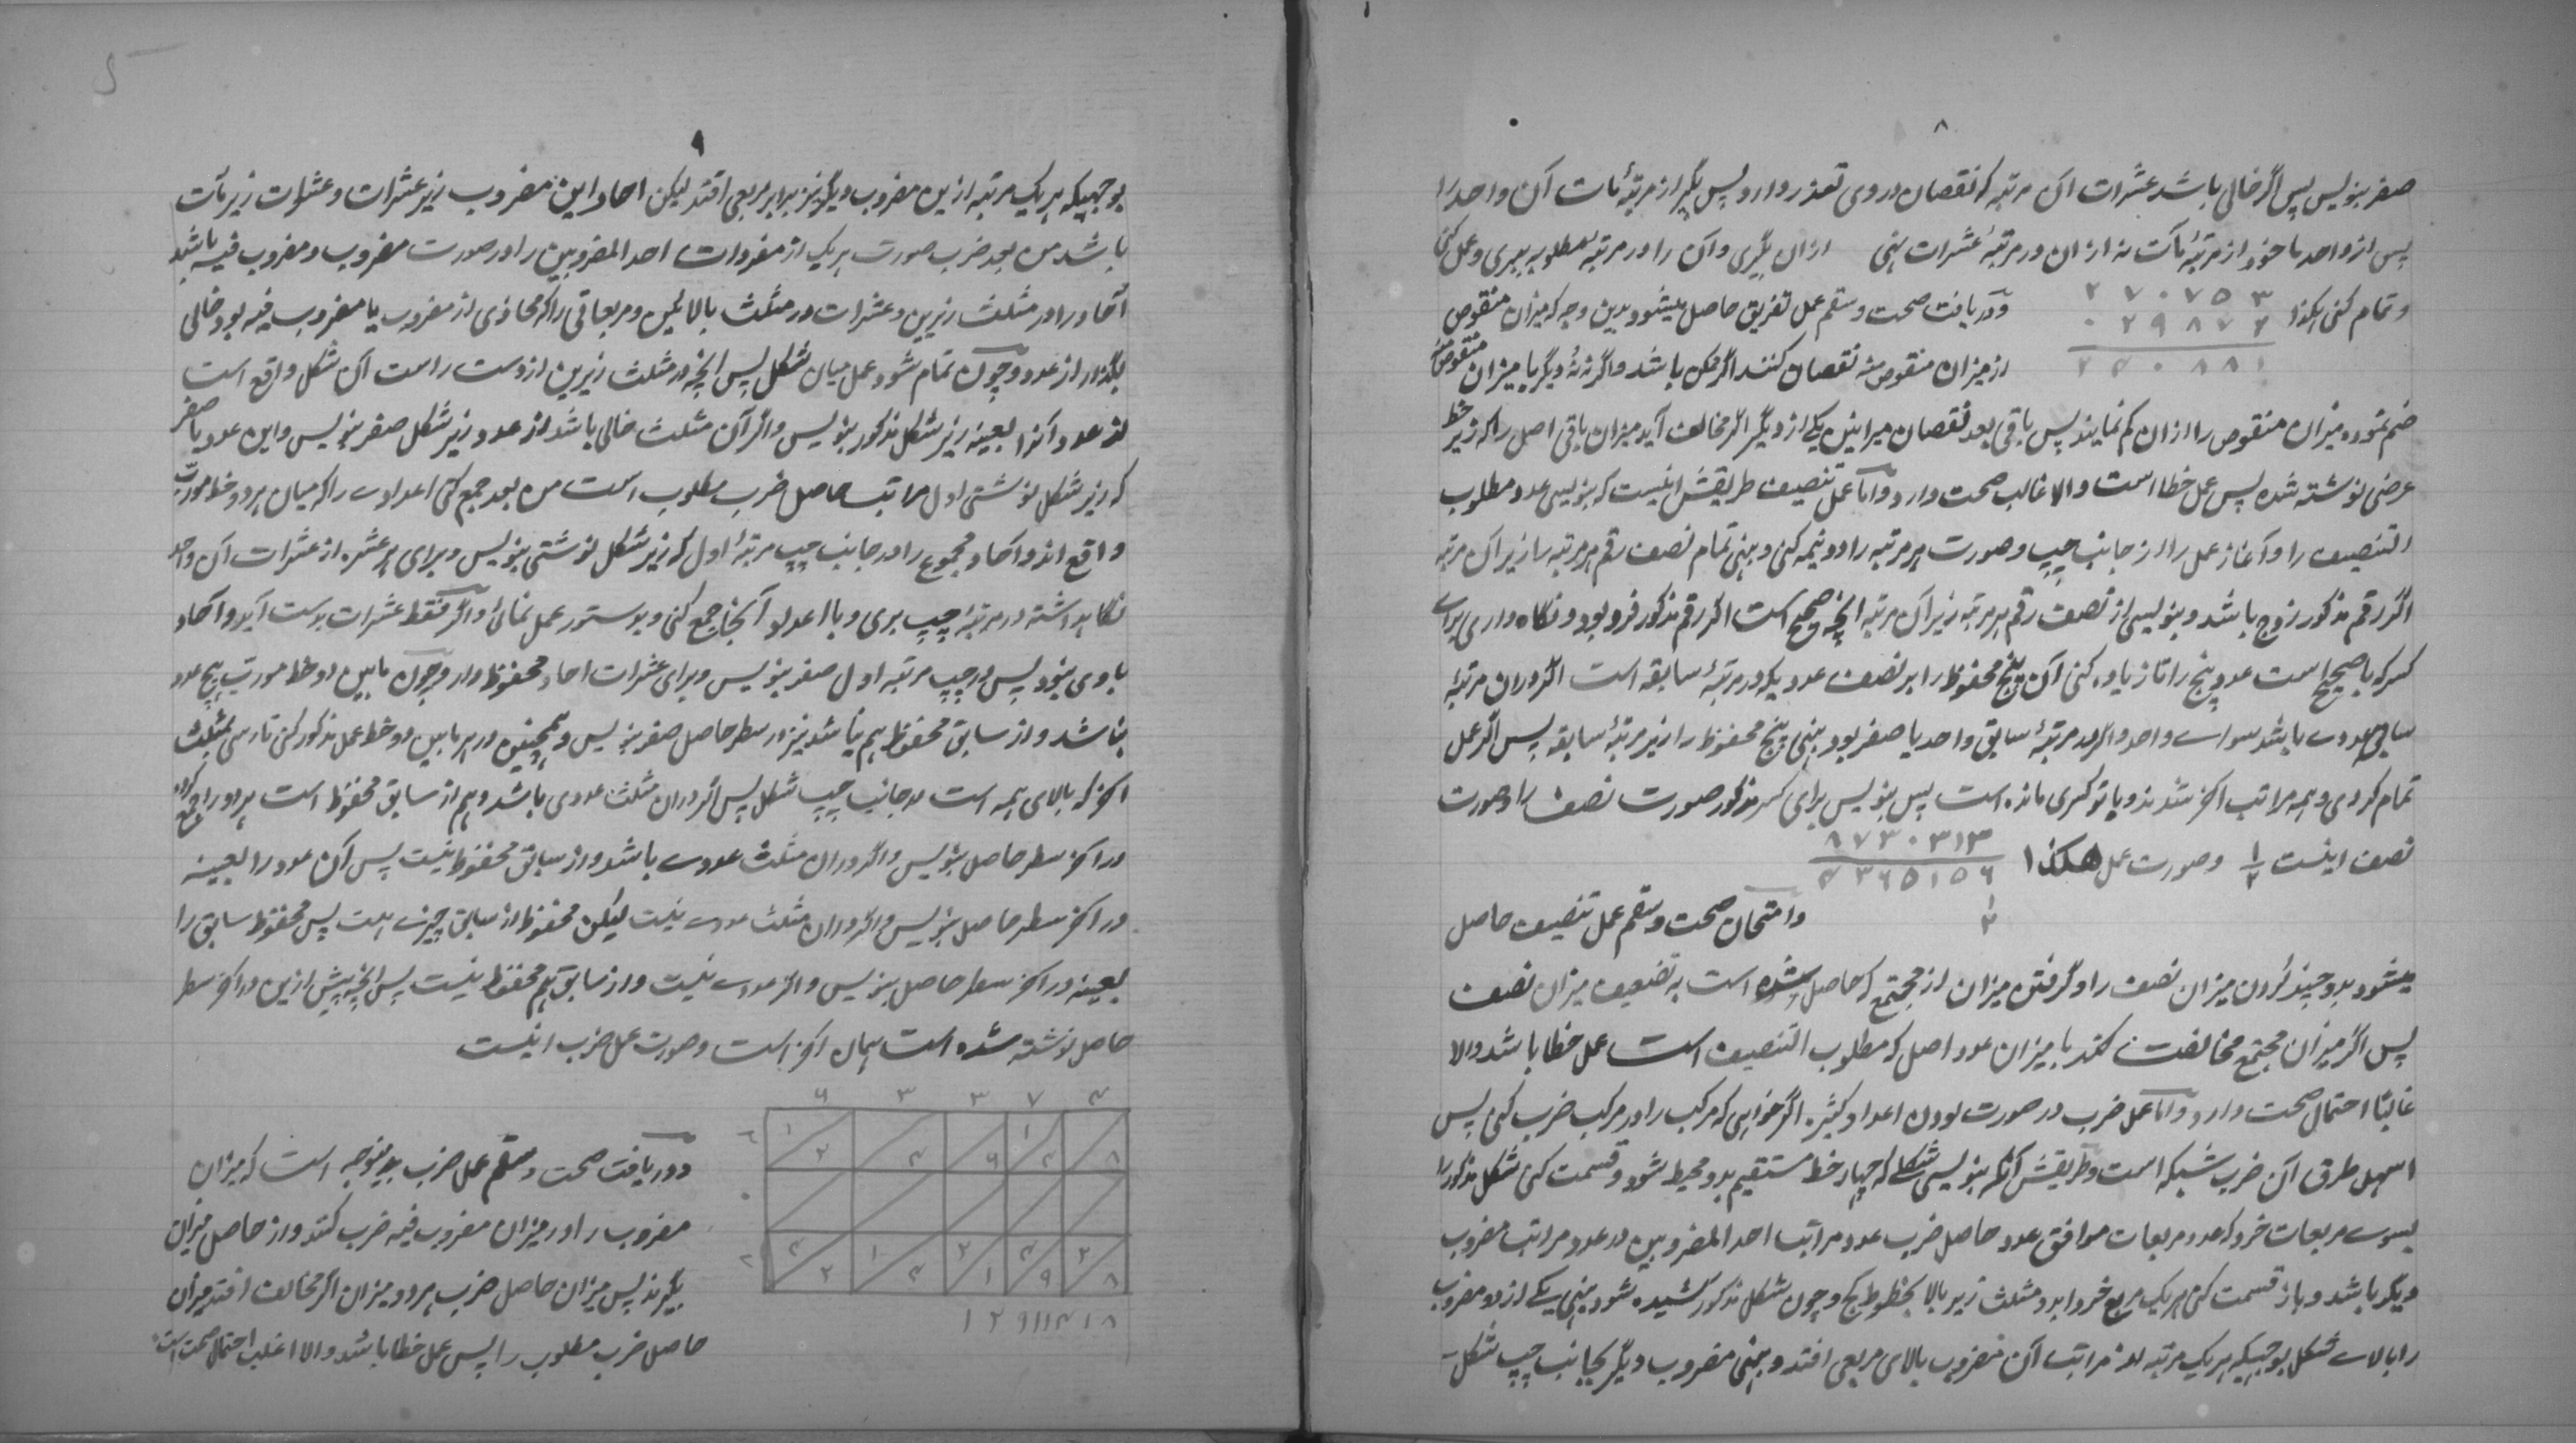 ۸
صفر بنویس پس اگر خالی باشد عشرات آن مرتبه که نقصان در وی تعذر دارد پس بگیر از مرتبهٔ مات آن واحد را
پس از واحد ماخوذ از مرتبهٔ مآت نه از ان در مرتبهٔ عشرات بنهی ازان بگیری و آن را در مرتبهٔ مطلوبه ببری و عمل کنی
و تمام کنی هکذا
۲ ۷ ۰ ۷ ۵ ۳
۰ ۲ ۹ ۸ ۷ ۲
۲ ۴ ۰ ۸ ۸ ۱
و دریافت صحت و سقم عمل تفریق حاصل میشود بدین وجه که میزان منقوص
از میزان منقوص منه نقصان کنند اگر ممکن باشد و اگر نه نُه دیگر با میزان منقوص منه
ضم نموده میزان منقوص را ازان کم نمایند پس باقی بعد نقصان میزانین یکی از دیگر اگر مخالف آید میزان باقی اصل را که زیر خط
عرضی نوشته شده پس عمل خطا است والا غالب صحت دارد و اما عمل تنصیف طریقش اینست که بنویسی عدد مطلوب
التنصیف را و آغاز عمل را از جانب چپ و صورت هر مرتبه را دو نیمه کنی و بنهی تمام نصف رقم هر مرتبه را زیر آن مرتبه
اگر رقم مذکور زوج باشد و بنویسی از نصف رقم هر مرتبه زیر آن مرتبه آنچه صحیح است اگر رقم مذکور فرد بود و نگاه داری برای
کسر که با صحیح است عدد پنج را تا زیاده کنی آن پنج محفوظ را بر نصف عددیکه در مرتبهٔ سابقه است اگر دران مرتبهٔ
سابق عددے باشد سواے واحد و اگر در مرتبهٔ سابق واحد یا صفر بود بنهی پنج محفوظ را زیر مرتبهٔ سابقه پس اگر عمل
تمام کردی و همه مراتب آخر شدند و با تو کسری مانده است پس بنویس برای کسر مذکور صورت نصف را و صورت
نصف اینست ۱/۲ و صورت عمل هکذا
۸ ۷ ۳ ۰ ۳ ۱ ۳
۴ ۳ ۶ ۵ ۱ ۵ ۶
۱
۲
و امتحان صحت و سقم عمل تنصیف حاصل
میشود بدو چند کردن میزان نصف را و گرفتن میزان از مجتمع که حاصل شده است به تضعیف میزان نصف
پس اگر میزان مجتمع مخالفت کند با میزان عدد اصل که مطلوب التنصیف است عمل خطا باشد والا
غالبًا احتمال صحت دارد و اما عمل ضرب در صورت بودن اعداد کثیره اگر خواهی که مرکب را در مرکب ضرب کنی پس
اسهل طرق آن ضرب شبکه است و طریقش آنکه بنویسی شکلے که چهار خط مستقیم بدو محیط شود و قسمت کنی شکل مذکور را
بسوے مربعات خرد که عدد مربعات موافق عدد حاصل ضرب عدد مراتب احد المضروبین در عدد مراتب مضروب
دیگر باشد و باز قسمت کنی هر یک مربع خرد را بدو مثلث زیر بالا بخطوط کج و چون شکل مذکور کشیده شود بنهی یکے از دو مضروب
را بالاے شکل بوجهیکه هر یک مرتبه از مراتب آن مضروب بالای مربعی افتد و بنهی مضروب دیگر بجانب چپ شکل
۹
بوجهیکه هر یک مرتبه ازین مضروب دیگر نیز برابر مربعی افتد لیکن احاد این مضروب زیر عشرات و عشرات زیر مآت
باشد من بعد ضرب صورت هر یک از مفردات احد المضروبین را در صورت مضروب و مضروب فیه باشد
آحاد را در مثلث زیرین و عشرات در مثلث بالا بگین و مربعاتی را که محاذی از مضروب یا مضروب فیه بود خالی
بگذار از عدد و چون تمام شود عمل میان شکل پس آنچه در مثلث زیرین از دست راست آن شکل واقع است
از عدد آنرا بعینه زیر شکل مذکور بنویس و اگر آن مثلث خالی باشد از عدد زیر شکل صفر بنویس و این عدد یا صفر
که زیر شکل نوشتی اول مراتب حاصل ضرب مطلوب است من بعد جمع کنی اعدادے را که میان هر دو خط مورب
واقع اند و احاد مجموع را در جانب چپ مرتبهٔ اول که زیر شکل نوشتی بنویس و برای هر عشره از عشرات آن واحد
نگاه داشته در مرتبهٔ چپ بری و با اعداد آنجا جمع کنی و بدستور عمل نمائی و اگر فقط عشرات بدست آید و آحاد
با وی نبود پس در چپ مرتبه اول صفر بنویس و برای عشرات احاد محفوظ دار و چون مابین دو خط مورب هیچ عدد
نباشد و از سابق محفوظ هم نباشد نیز در سطر حاصل صفر بنویس و همچنین در هر مابین دو خط عمل مذکور کنی تا رسی بمثلث
آخر که بالای همه است در جانب چپ شکل پس اگر دران مثلث عددی باشد و هم از سابق محفوظ است هر دو را جمع کرده
در آخر سطر حاصل بنویس و اگر دران مثلث عددے باشد و از سابق محفوظ نیست پس آن عدد را بعینه
در آخر سطر حاصل بنویس و اگر دران مثلث عددے نیست لیکن محفوظ از سابق چیزے هست پس محفوظ سابق را
بعینه در آخر سطر حاصل بنویس و اگر عددے نیست و از سابق هم محفوظ نیست پس آنچه پیش ازین در آخر سطر
حاصل نوشته شده است همان آخر است و صورت عمل ضرب اینست
۶ ۳ ۳ ۷ ۴
۲ ۱ ۲ ۴ ۶ ۱ ۴ ۸
۰
۴ ۲ ۱ ۴ ۲ ۱ ۴ ۹ ۲ ۸
۱ ۲ ۹ ۱ ۱ ۴ ۱ ۸
و دریافت صحت و سقم عمل ضرب بدینوجه است که میزان
مضروب را در میزان مضروب فیه ضرب کنند و از حاصل میزان
بگیرند پس میزان حاصل ضرب هر دو میزان اگر مخالف افتد میزان
حاصل ضرب مطلوب را پس عمل خطا باشد والا اغلب احتمال صحت است